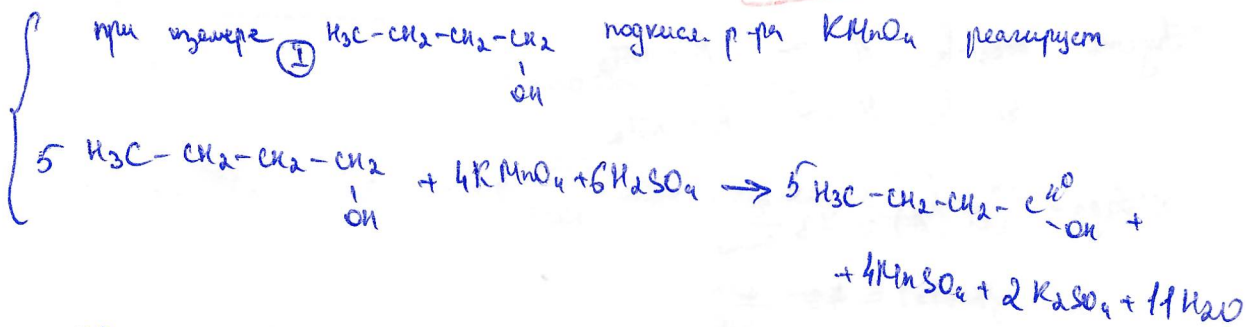 при изомере Ⓘ H3C-CH2-CH2-CH2 подкисл. р-ра KMnO4 реагирует
OH
5 H3C-CH2-CH2-CH2 + 4KMnO4 + 6H2SO4 → 5 H3C-CH2-CH2-C=O +
OH -OH
+ 4MnSO4 + 2K2SO4 + 11H2O